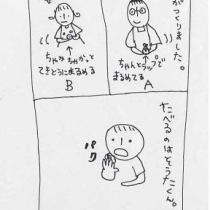 がつくりました。
ちゃんとラップで
まるめてる
A
せ
ちゃかちゃかっと
てきとうにまるめる
B
たべるのはそうたくん。
パク